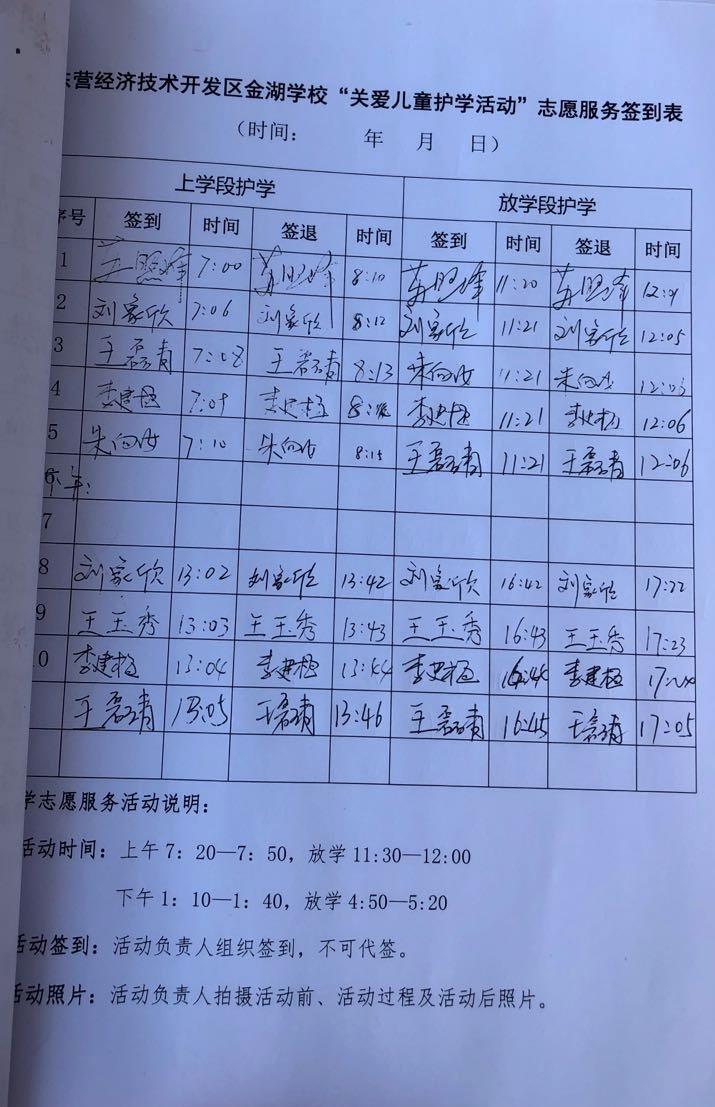 东营经济技术开发区金湖学校“关爱儿童护学活动”志愿服务签到表
（时间： 年 月 日）
上学段护学 放学段护学
序号 签到 时间 签退 时间 签到 时间 签退 时间
1 7:00 8:10 11:20
2 刘家欣 7:06 刘家欣 8:12 刘家欣 11:21 刘家欣 12:05
3 王磊青 7:08 王磊青 8:13 朱向汝 11:21 朱向汝 12:03
4 李建极 李建极 李建极 11:21 李建极 12:06
5 朱向汝 7:10 朱向汝 8:15 王磊青 11:21 王磊青 12:06
6 下午：
7
8 刘家欣 13:02 刘家欣 13:42 刘家欣 16:42 刘家欣 17:22
9 王玉秀 13:03 王玉秀 13:43 王玉秀 16:43 王玉秀 17:23
0 李建极 13:04 李建极 13:44 李建极 16:44 李建极
王磊青 13:05 王磊青 13:46 王磊青 16:45 王磊青 17:05
学志愿服务活动说明：
活动时间：上午7：20—7：50，放学11:30—12:00
下午1：10—1：40，放学4:50—5:20
活动签到：活动负责人组织签到，不可代签。
活动照片：活动负责人拍摄活动前、活动过程及活动后照片。